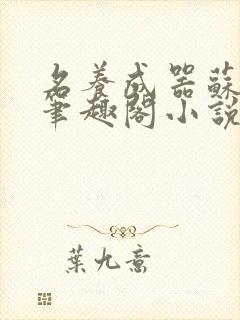 名養成器蘇
筆趣閣小說
葉九意